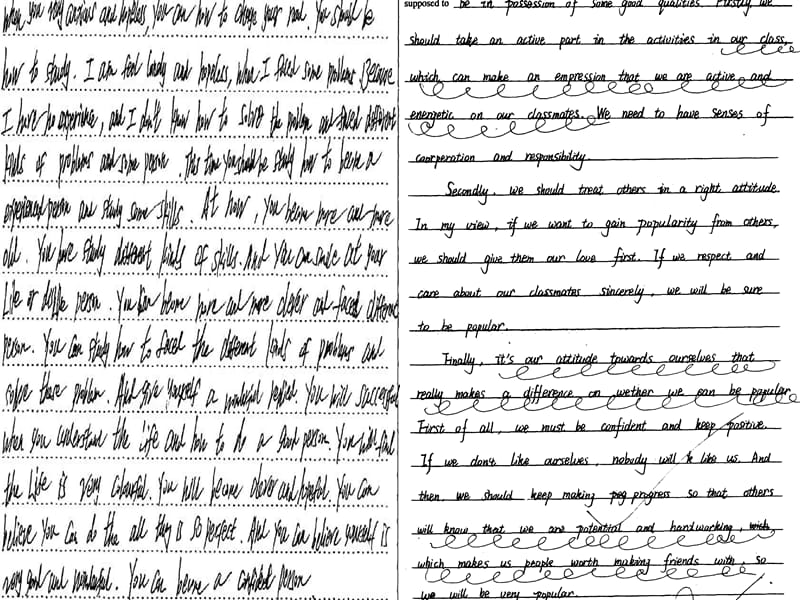 when you very anxious and hopeless, you can how to change your mood. You should be
how to study. I am feel lonely and hopeless, when I faced some problems Because
I have no experience, and I don't know how to solve the problem and faced different
kinds of problems and some person. this time you should be study how to become a
experienced person and study some skills. At now, you become more and more
old. You have study different kinds of skills. And you can smile at your
life or person. You become more and more clever and faced different
person. You can study how to faced the different kinds of problems and
solve these problem. And give yourself a wonderful You will successful
when you understand the life and how to do a good person. You will find
the life is very colourful. You will become clever and hopeful. You can
believe you can do the all thing is so perfect. And you can believe yourself is
very good and wonderful. You can become a confident person
supposed to be in possession of some good qualities. Firstly we
should take an active part in the activities in our class,
which can make an empression that we are active and
energetic on our classmates. We need to have senses of
coorperation and responsibility.
Secondly, we should treat others in a right attitude.
In my view, if we want to gain popularity from others,
we should give them our love first. If we respect and
care about our classmates sincerely, we will be sure
to be popular.
Finally, it's our attitude towards ourselves that
really makes a difference on wether we can be popular.
First of all, we must be confident and keep positive.
If we don't like ourselves, nobody will like us. And
then we should keep making progress so that others
will know that we are potential and hardworking, which
which makes us people worth making friends with, so
we will be very popular.